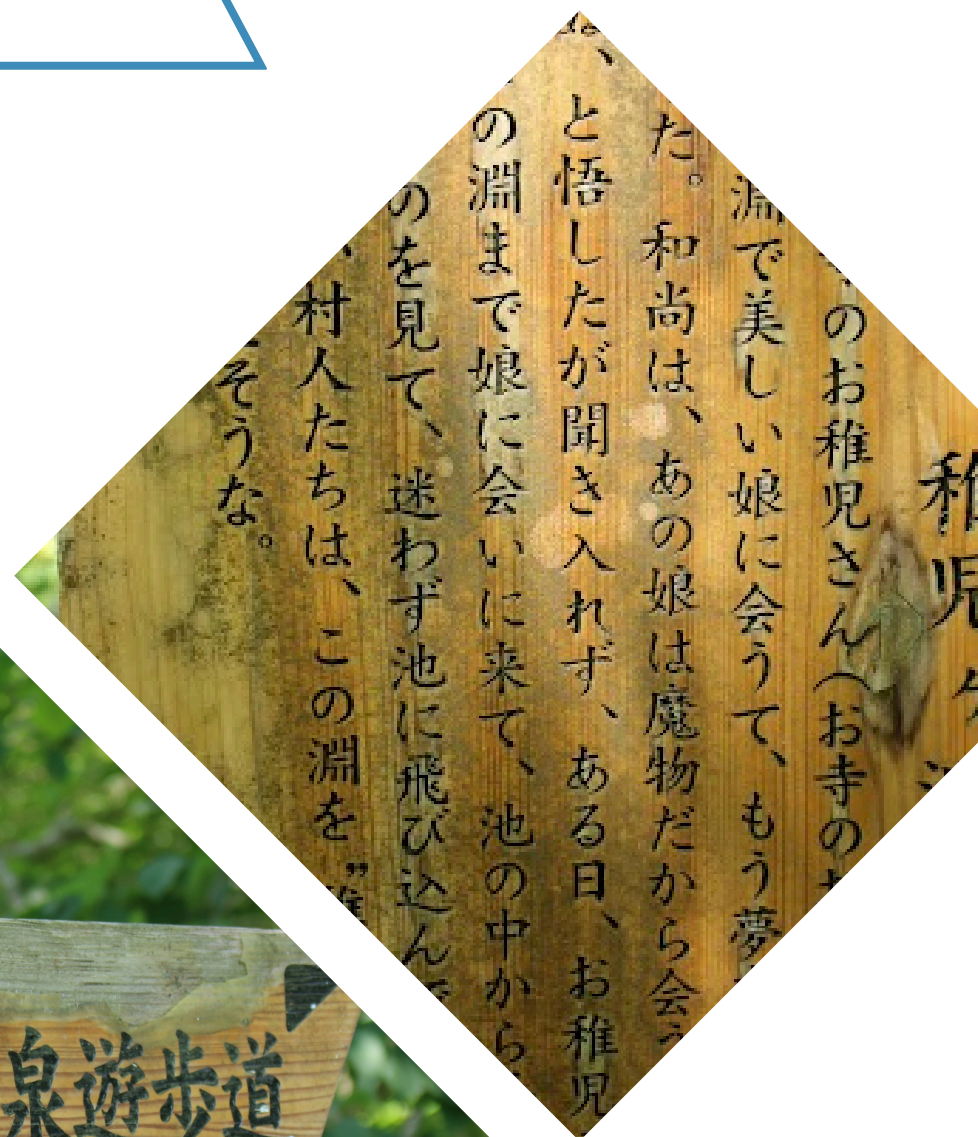 稚児
のお稚児さん(お寺の
淵で美しい娘に会うて、もう夢
た。和尚は、あの娘は魔物だから会う
、と悟したが聞き入れず、ある日、お稚児
の淵まで娘に会いに来て、池の中から
のを見て、迷わず池に飛び込んで
、村人たちは、この淵を”稚
そうな。
泉遊歩道